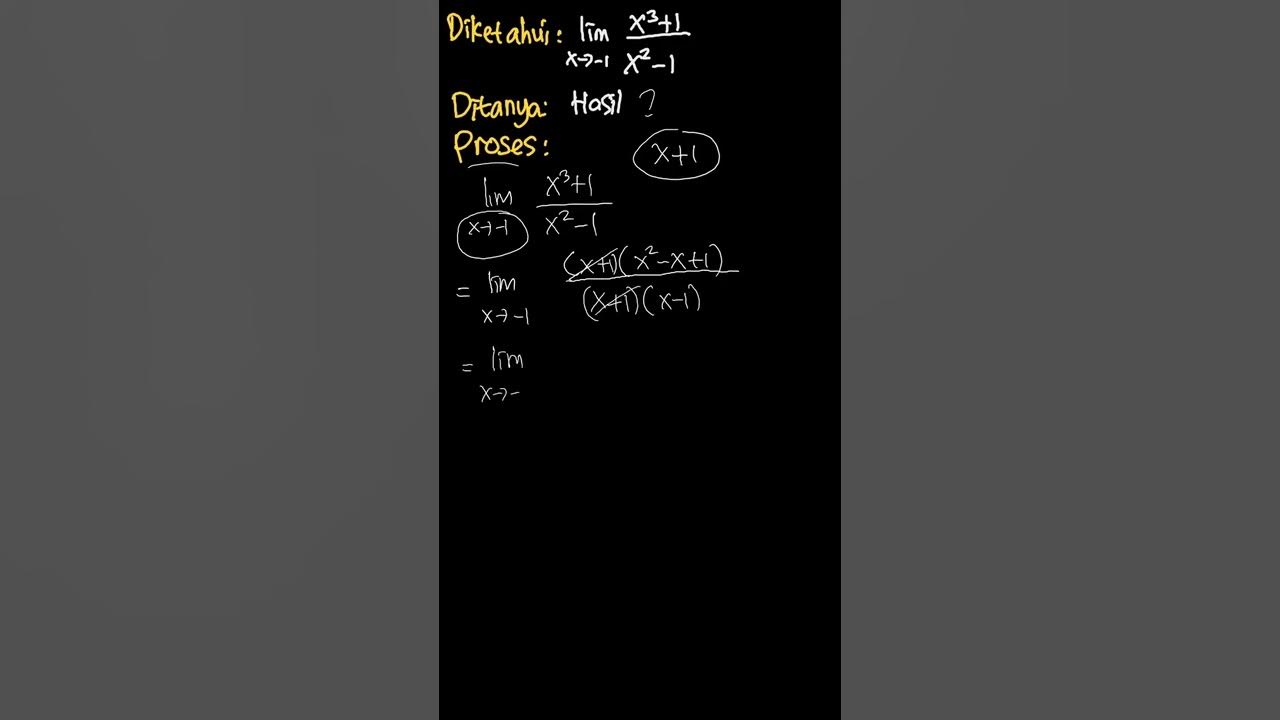 Diketahui: lim x³+1
x→-1 x²-1
Ditanya: Hasil ?
Proses:
x+1
lim x³+1
x→-1 x²-1
= lim (x+1)(x²-x+1)
x→-1 (x+1)(x-1)
= lim
x→-